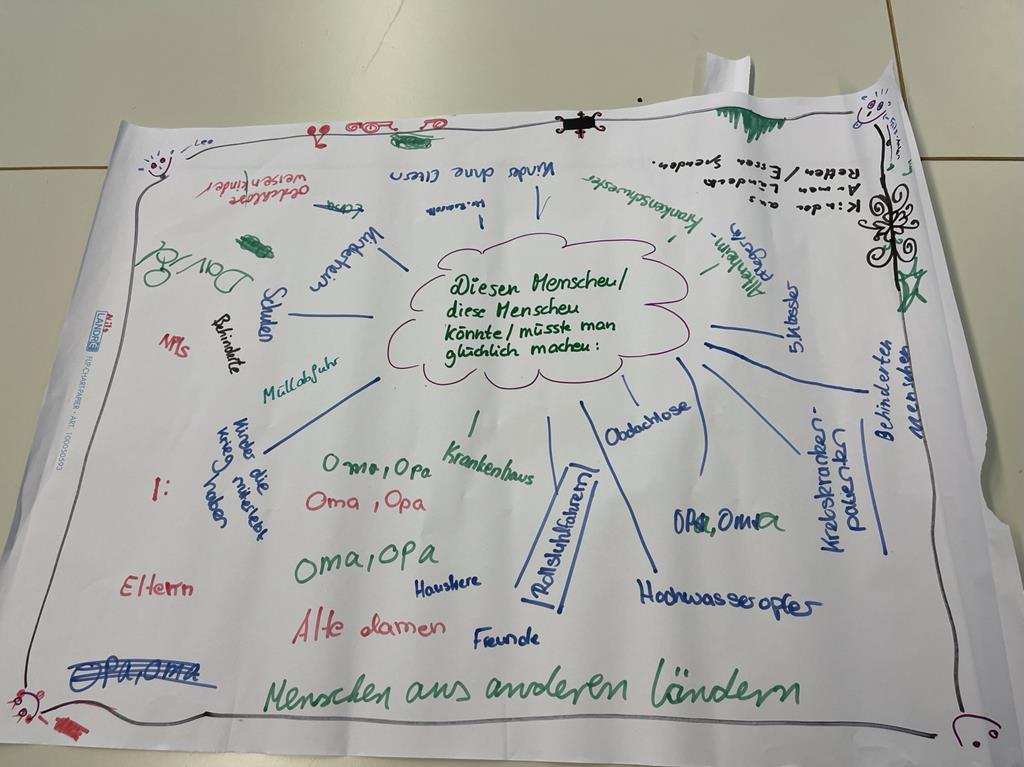 Leo
Obdachlose
weisenkinder
Kinder ohne Eltern
Krankenschwester
Kinder aus
Armen Ländern
Retten/Essen Spenden.
Kinderheim
Altenheim-
pflegerIn
Diesen Menschen/
diese Menschen
könnte/müsste man
glücklich machen:
Schulen
Behinderte
Müllabfuhr
LANDRÉ FLIPCHARTPAPIER • ART. 100050593
Behinderten
menschen
Kinder die
Krieg miterlebt
haben
Obdachlose
Krankenhaus
Oma, Opa
Oma, Opa
Oma, OPA
Rollstuhlfahrern
OPA, Oma
Krebskranken-
patienten
Eltern
Haustiere
Hochwasseropfer
Alte damen
Freunde
OPA, Oma
Menschen aus anderen Ländern